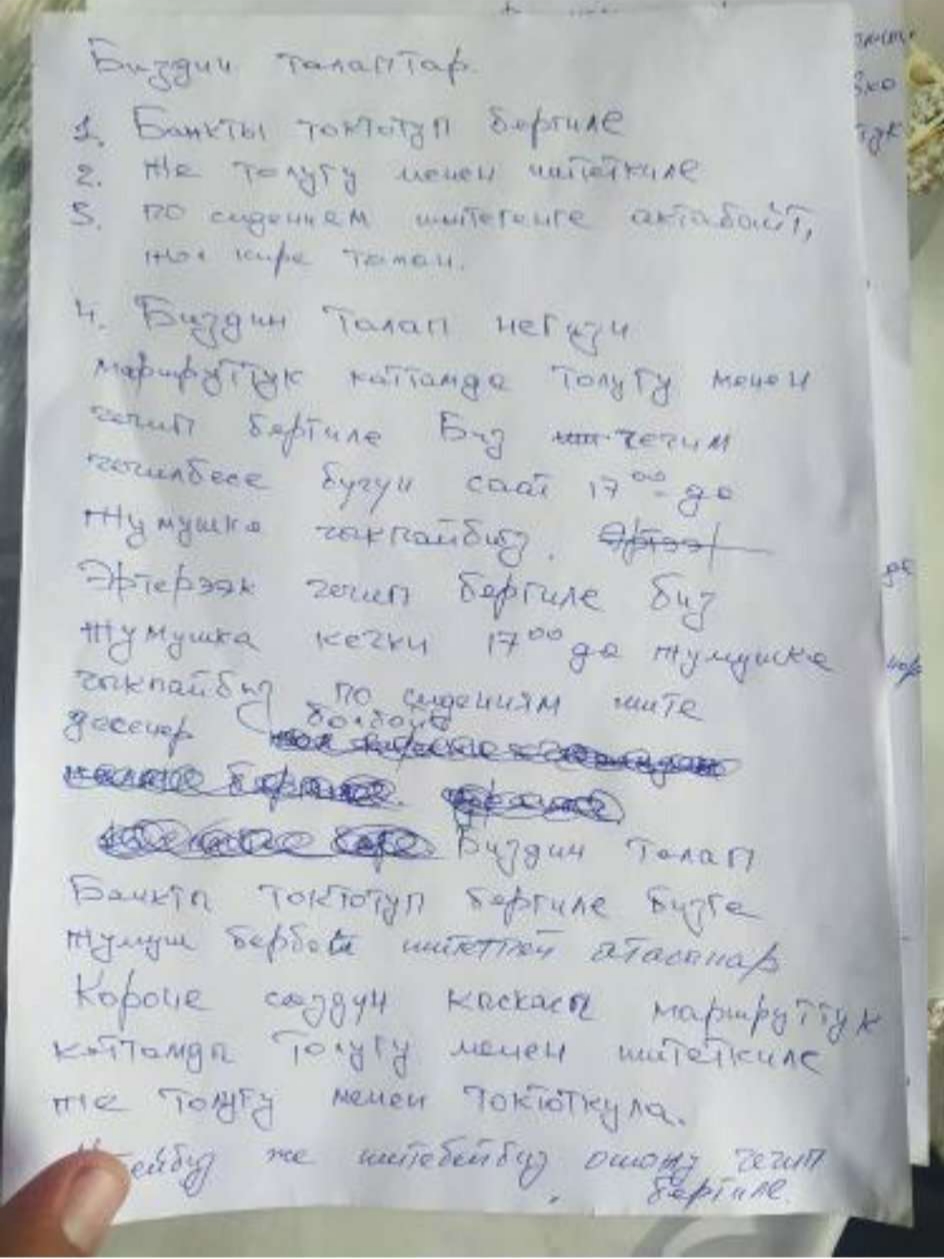 Биздин талаптар.
1. Банкты токтотуп бергиле
2. Же толугу менен иштеткиле
3. по сидениям иштегенге актабайт,
жол кире төмөн.
4. Биздин талап негизи
маршруттук каттамда толугу менен
чечип бергиле Биз чечим
чечилбесе бүгүн саат 17⁰⁰ де
Жумушка чыкпайбыз.
Эртерээк чечип бергиле биз
жумушка кечки 17⁰⁰ де жумушка
чыкпайбыз по сидениям иште
десеңер болбойт
Биздин талап
Банкты токтотуп бергиле бизге
жумуш бербей иштетпей атасынар
Короче сөздүн кыскасы маршруттук
каттамды толугу менен иштеткиле
же толугу менен токтоткула.
же иштебейбиз ошону чечип
бергиле.